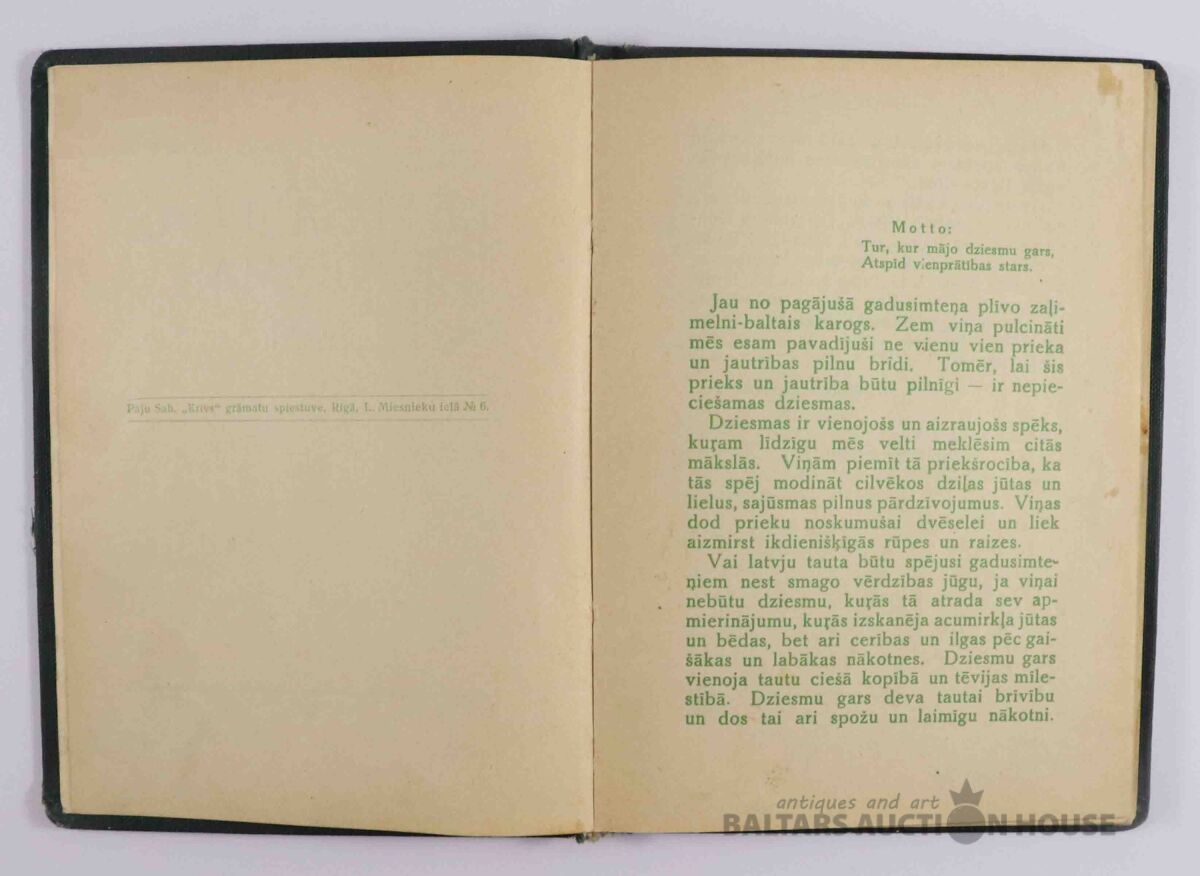 Paju Sab. „Krīvs“ grāmatu spiestuve, Rīgā, L. Miesnieku ielā № 6.
Motto:
Tur, kur mājo dziesmu gars,
Atspīd vienprātības stars.
Jau no pagājušā gadusimteņa plīvo zaļi-
melni-baltais karogs. Zem viņa pulcināti
mēs esam pavadījuši ne vienu vien prieka
un jautrības pilnu brīdi. Tomēr, lai šis
prieks un jautrība būtu pilnīgi — ir nepie-
ciešamas dziesmas.
Dziesmas ir vienojošs un aizraujošs spēks,
kuŗam līdzīgu mēs velti meklēsim citās
mākslās. Viņām piemīt tā priekšrocība, ka
tās spēj modināt cilvēkos dziļas jūtas un
lielus, sajūsmas pilnus pārdzīvojumus. Viņas
dod prieku noskumušai dvēselei un liek
aizmirst ikdienišķīgās rūpes un raizes.
Vai latvju tauta būtu spējusi gadusimte-
ņiem nest smago vērdzības jūgu, ja viņai
nebūtu dziesmu, kuŗās tā atrada sev ap-
mierinājumu, kuŗās izskanēja acumirkļa jūtas
un bēdas, bet ari cerības un ilgas pēc gai-
šākas un labākas nākotnes. Dziesmu gars
vienoja tautu ciešā kopībā un tēvijas mīle-
stībā. Dziesmu gars deva tautai brīvību
un dos tai ari spožu un laimīgu nākotni.
antiques and art
BALTARS AUCTION HOUSE